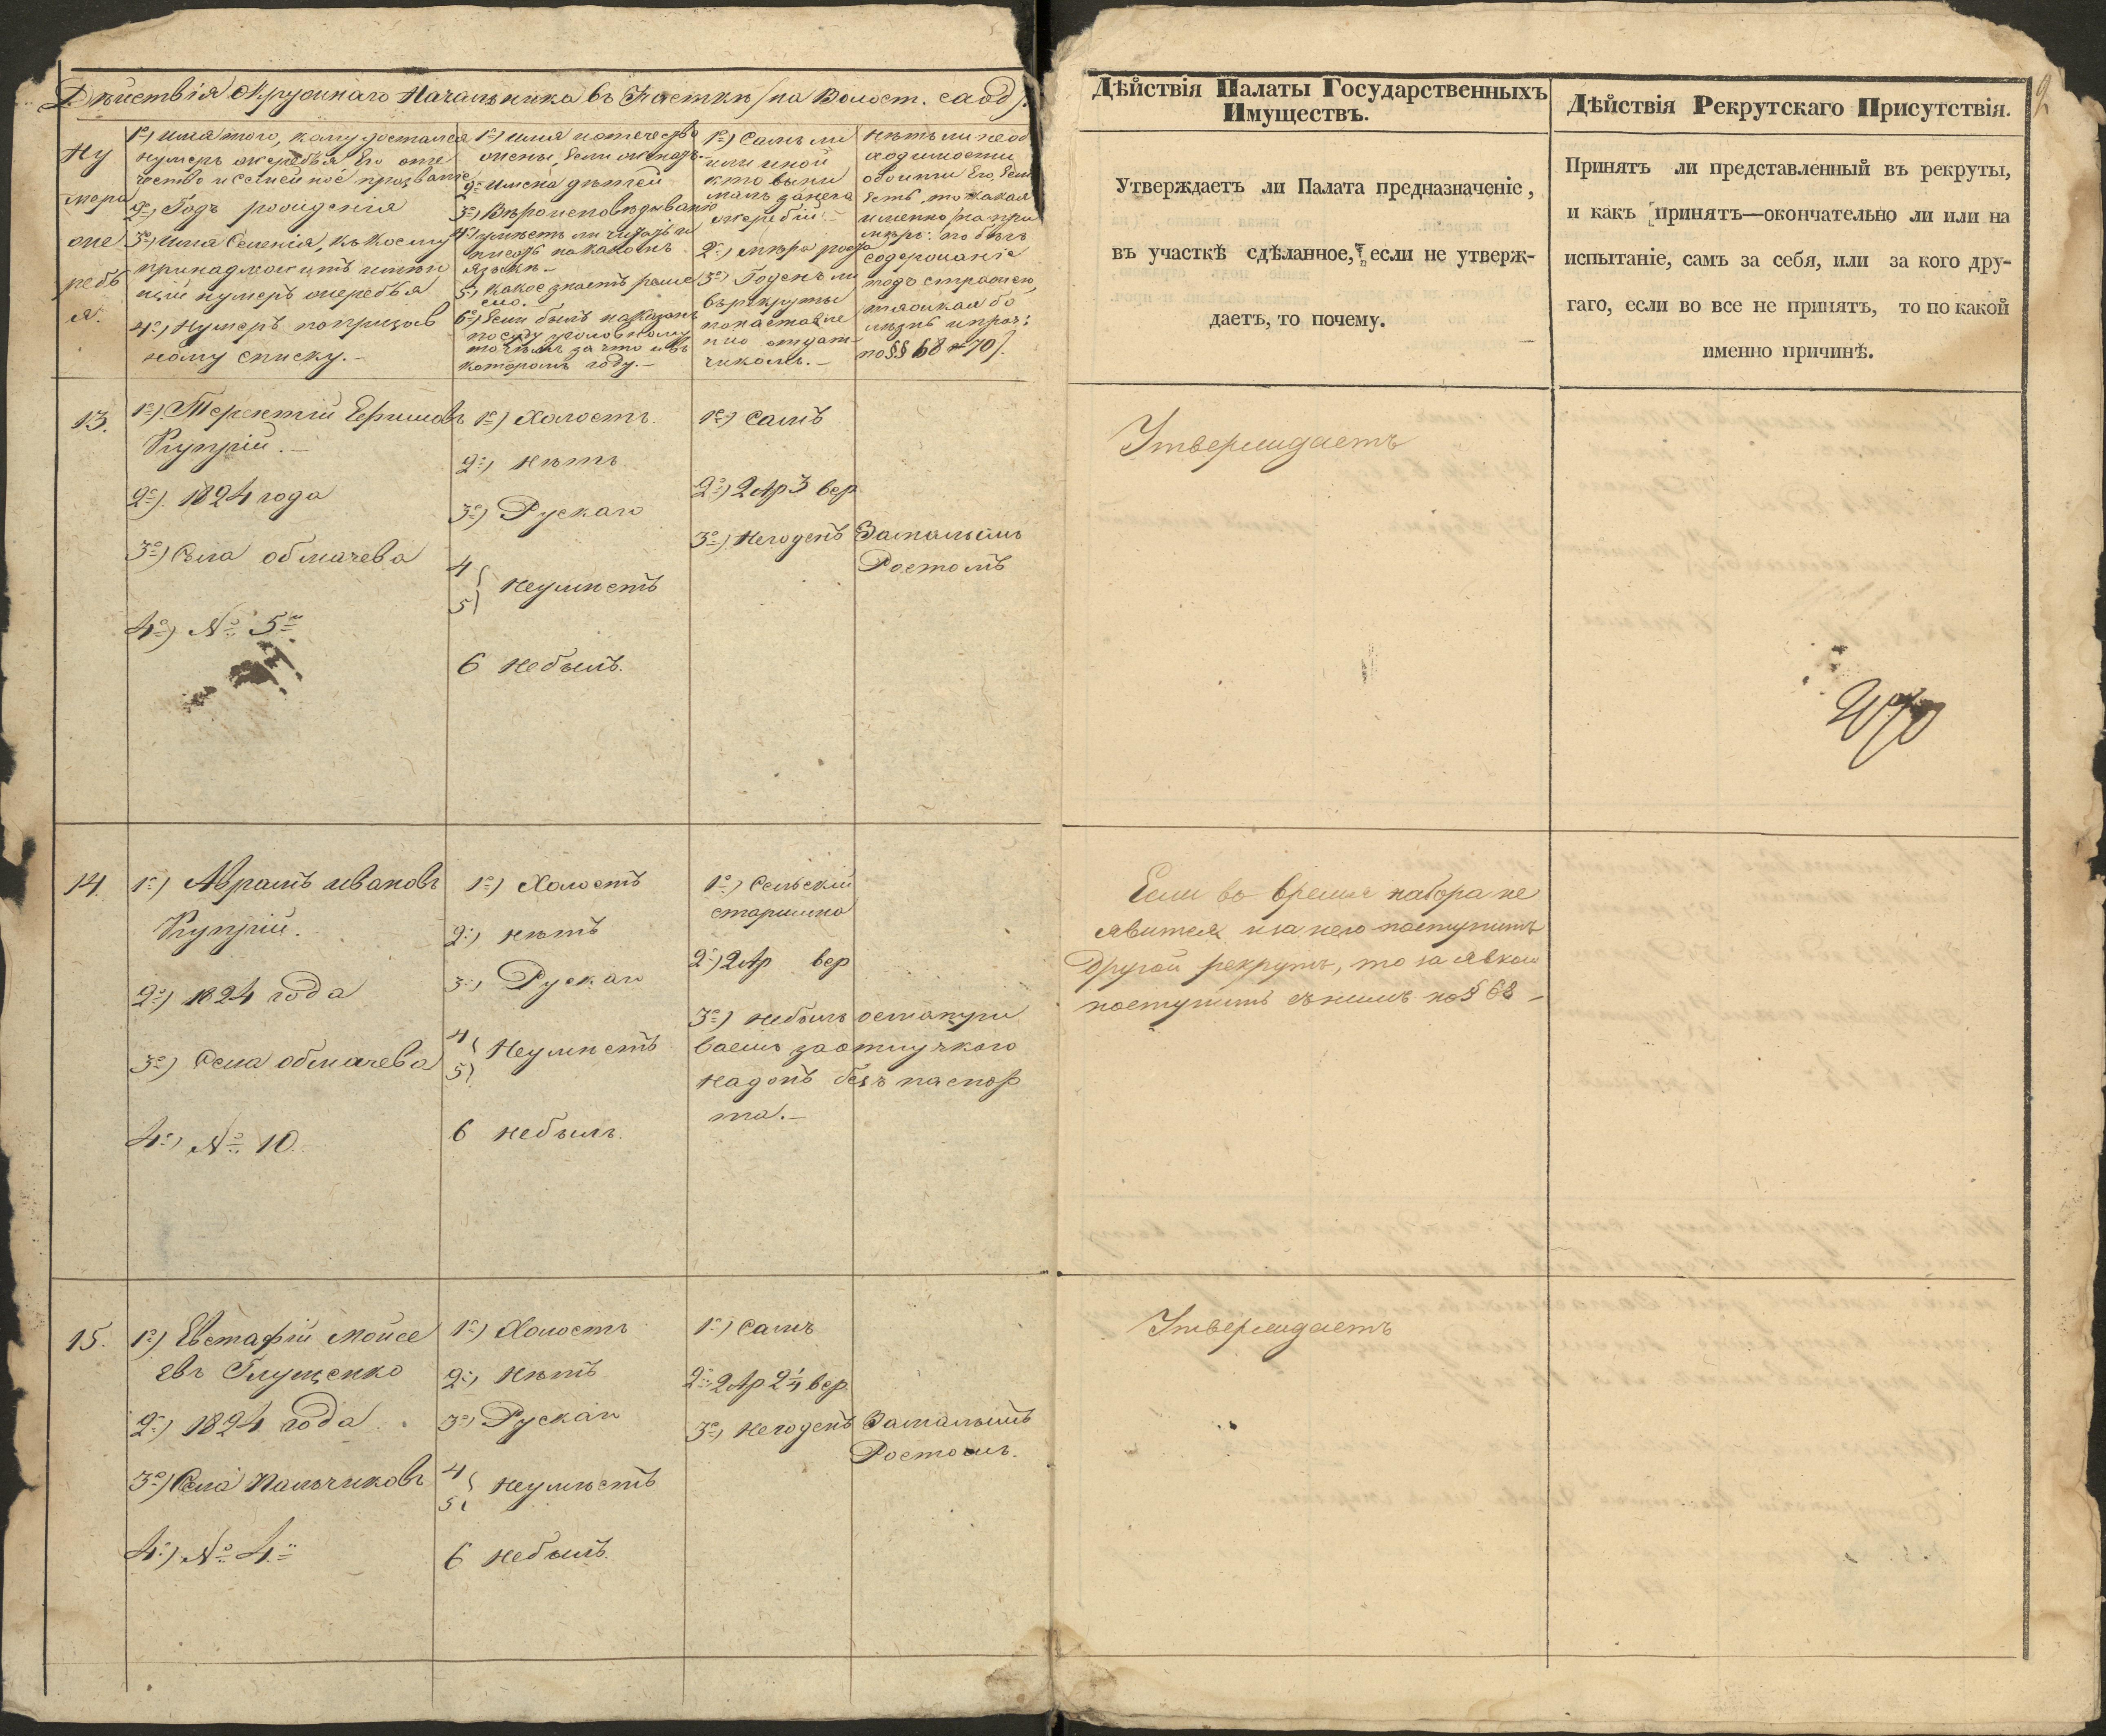 Дѣйствія Окружнаго Начальника въ Участкѣ (на Волост. сход)
Ну
мера
же
ребь
я.
1е) Имя того, кому достался
нумеръ жеребья Его оте
чество и семейное прозваніе
2е) Годъ рожденія
3е) Имя Селенія, къ коему
принадлежитъ
нумеръ жеребья
4е) Нумеръ по призыв
ному списку.
1е) Имя и отечество
жены, Если женатъ.
2е Имена дѣтей
3е) Вѣроисповѣдываніе
4 умѣетъ ли читать и
писать на какомъ
языкѣ
5) Какое знаетъ ремес
ло.
6е) Если былъ наказанъ
по суду уголовному
за что и въ
которомъ году.
1е) Самъ ли
или иной
кто выни
малъ за него
жеребій
2е) мѣра роста
3е) Годенъ ли
въ рекруты
по наставле
нію отдат
чикамъ.
Нѣтъ ли необ
ходимости
обойти Его, Если
Есть, то какая
именно (на при
мѣръ: побѣгъ
содержаніе
подъ стражею,
тяжкая бо
лѣзнь и проч:
по §§ 68 и 70).
13.
1е) Терентій Ефимовъ
Купрій.
2е) 1824 года
3е) Села обмачева
4е) № 5й
1е) Холостъ
2е) Нѣтъ
3е) Рускаго
4
5
Неумѣетъ
6 Небылъ.
1е) Самъ
2е) 2 Ар 3 вер
3е) Негоденъ
Замалымъ
Ростомъ
14.
1е) Аврамъ Ивановъ
Купрій.
2е) 1824 года
3е) Села обмачева
4е) № 10.
1е) Холостъ
2е) Нѣтъ
3е) Рускаго
4
5
Неумѣетъ
6 Небылъ.
1е) Сельскій
старшина
2е) 2 Ар вер
3е) Небылъ
ваемъ заотлучкою
Надонъ безъ паспор
та.
15.
1е) Евстафій Моисе
евъ Глущенко
2е) 1824 года
3е) Села Пальчиковъ
4е) № 4й
1е) Холостъ
2е) Нѣтъ
3е) Рускаго
4
5
Неумѣетъ
6 Небылъ.
1е) Самъ
2е 2 Ар 2¼ вер
3е) Негоденъ
Замалымъ
Ростомъ.
2
Дѣйствія Палаты Государственныхъ
Имуществъ.
Утверждаетъ ли Палата предназначеніе,
въ участкѣ сдѣланное, если не утверж-
даетъ, то почему.
Дѣйствія Рекрутскаго Присутствія.
Принятъ ли представленный въ рекруты,
и какъ принятъ—окончательно ли или на
испытаніе, самъ за себя, или за кого дру-
гаго, если во все не принятъ, то по какой
именно причинѣ.
Утверждаетъ
Если во время набора не
явится и за него поступитъ
другой рекрутъ, то за явкою
поступить съ нимъ по § 68
Утверждаетъ